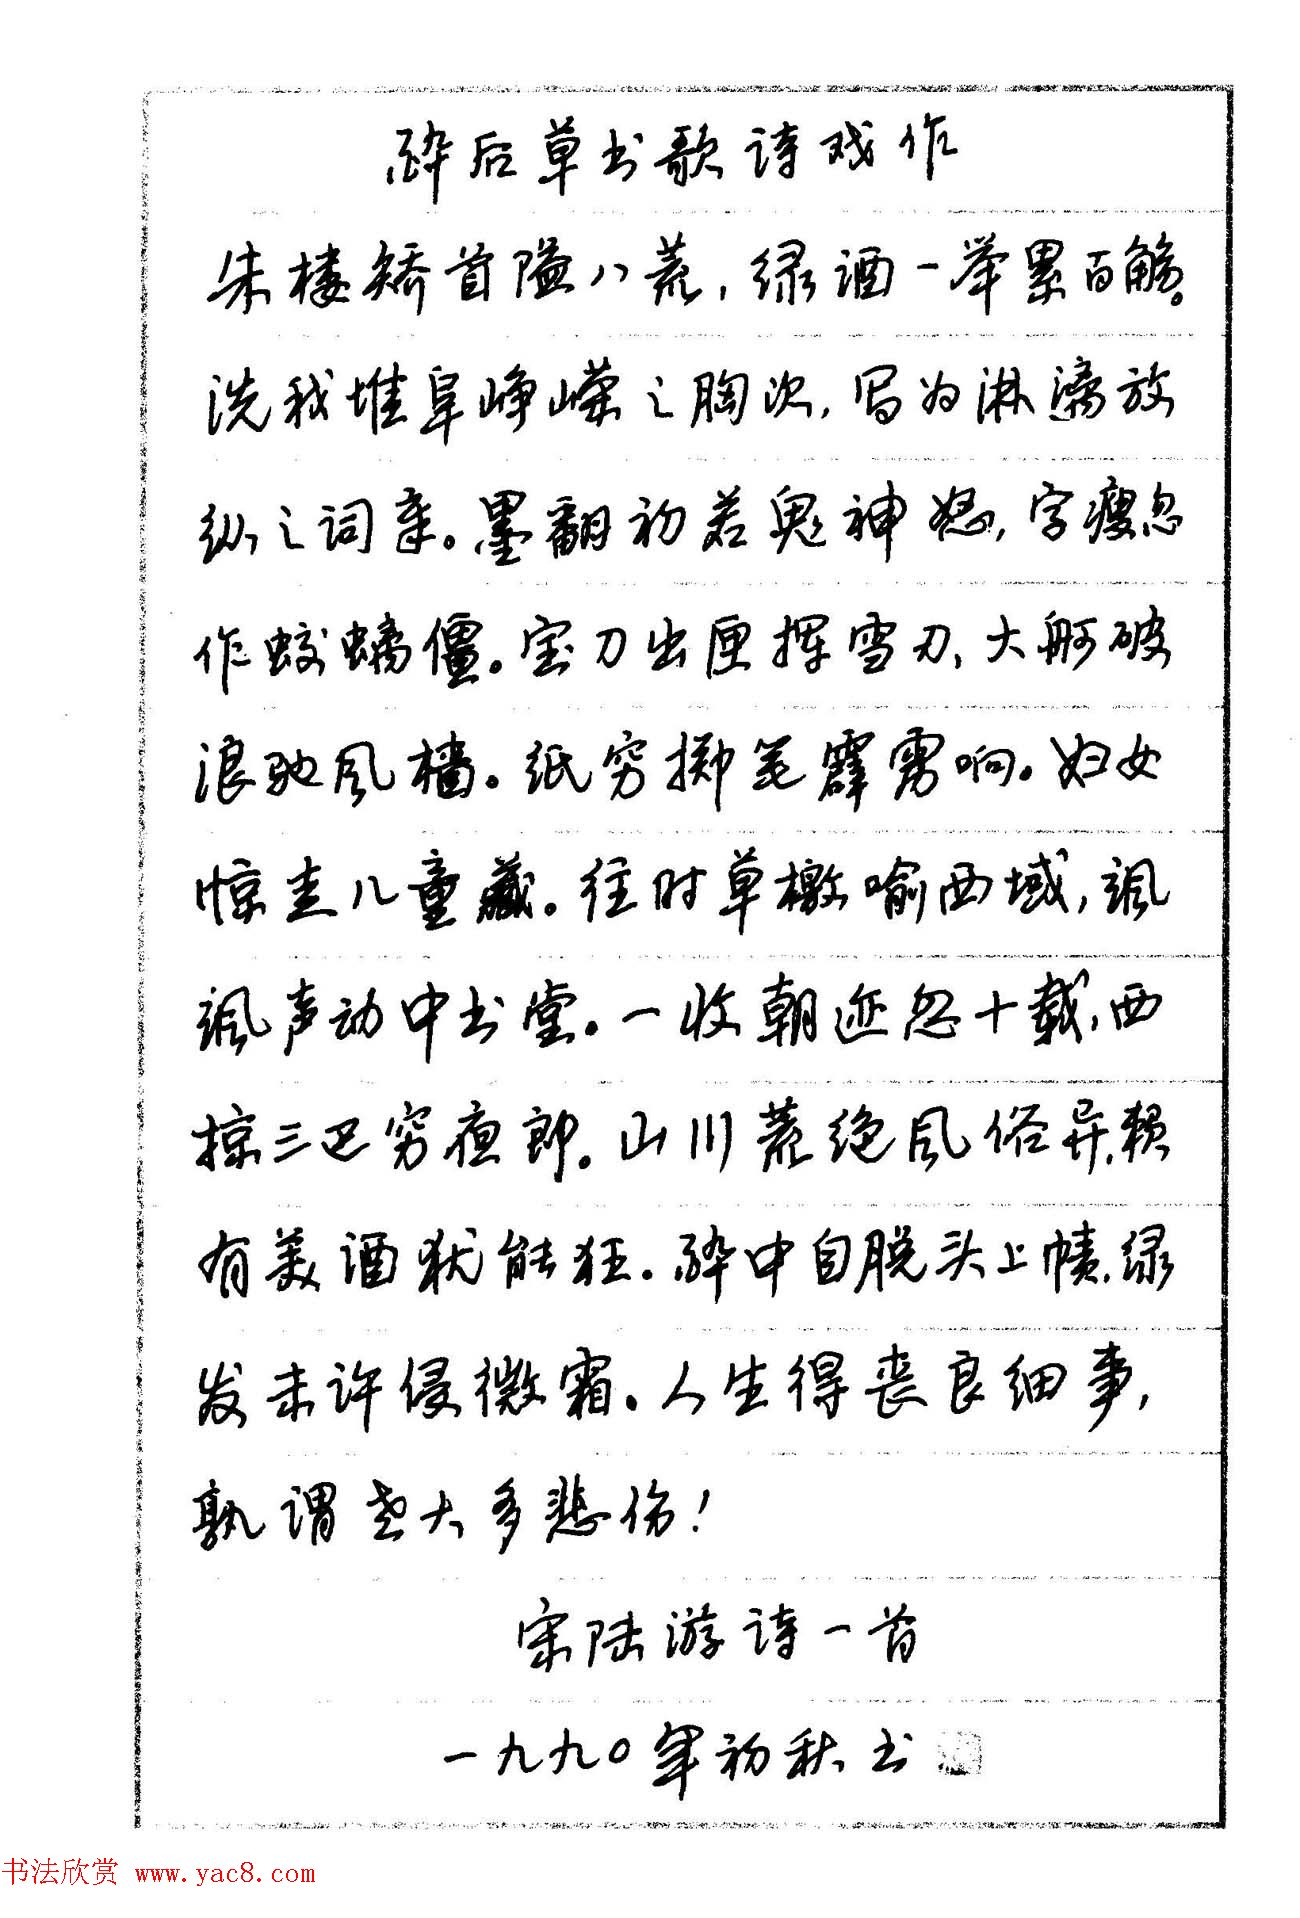 醉后草书歌诗戏作
朱楼矫首隘八荒，绿酒一举累百觞。
洗我堆阜峥嵘之胸次，写为淋漓放
纵之词章。墨翻初若鬼神怒，字瘦忽
作蛟螭僵。宝刀出匣挥雪刃，大舸破
浪驰风樯。纸穷掷笔霹雳响。妇女
惊走儿童藏。往时草檄喻西域，飒
飒声动中书堂。一收朝迹忽十载，西
掠三巴穷夜郎。山川荒绝风俗异，赖
有美酒犹能狂。醉中自脱头上帻，绿
发未许侵微霜。人生得丧良细事，
孰谓老大多悲伤！
宋陆游诗一首
一九九〇年初秋书
书法欣赏 www.yac8.com